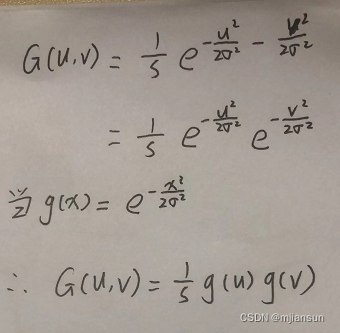 G(u,v) = 1/s e^{-u²/2σ² - v²/2σ²}
= 1/s e^{-u²/2σ²} e^{-v²/2σ²}
当 g(x) = e^{-x²/2σ²}
∴ G(u,v) = 1/s g(u) g(v)
CSDN @mjiansun